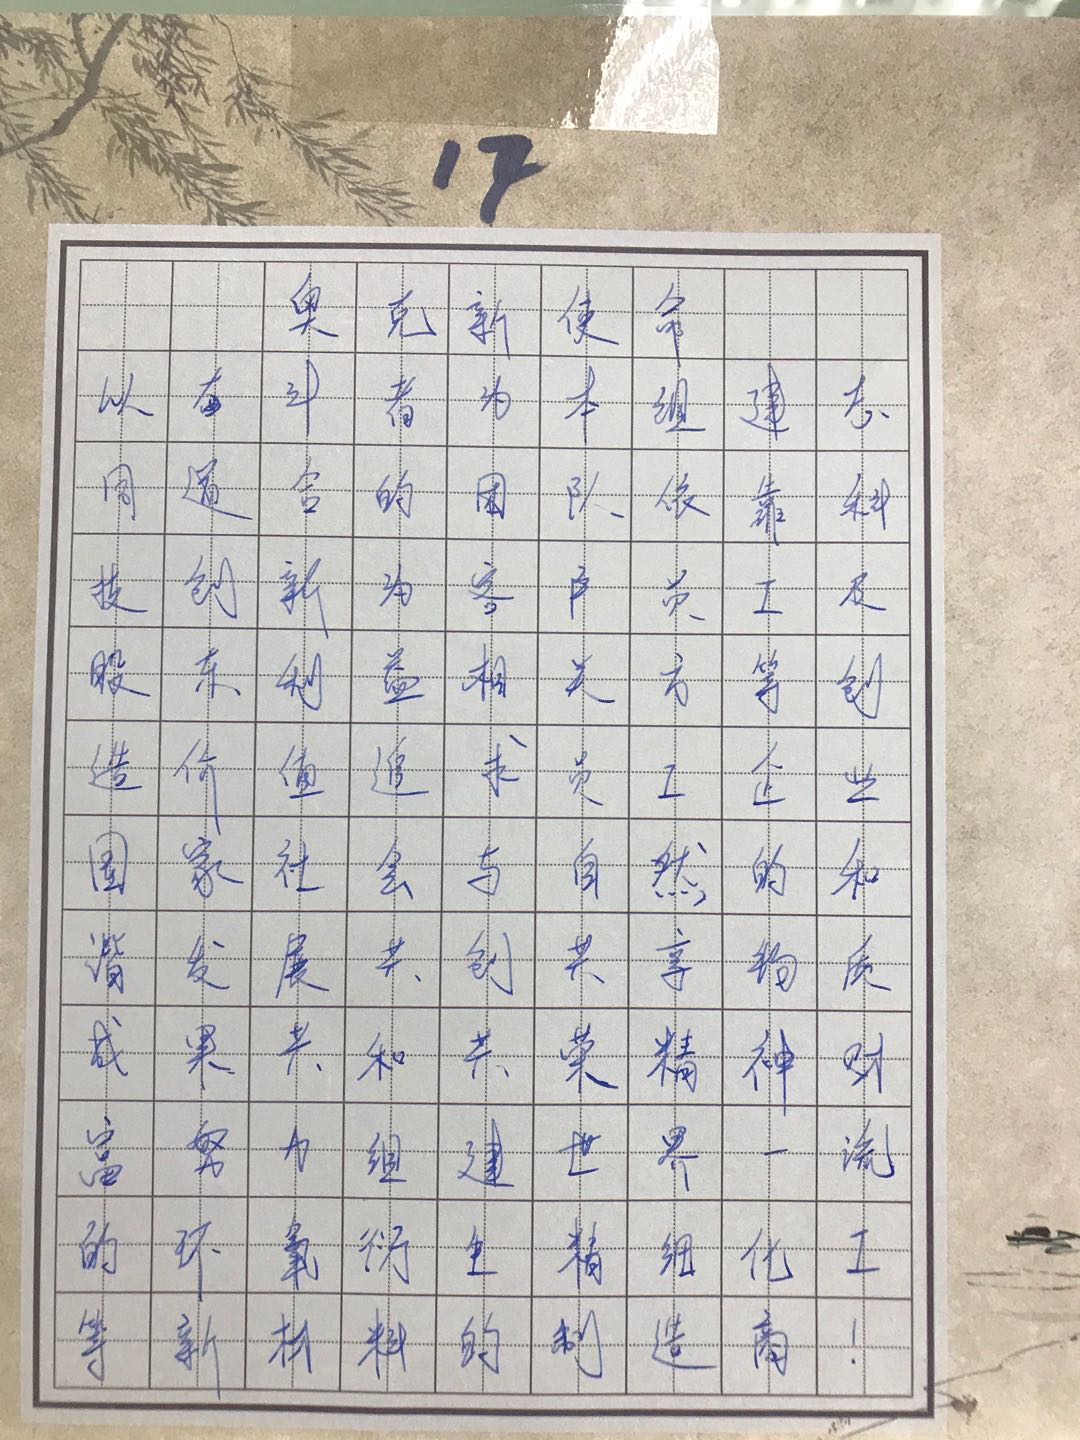 17
奥克新使命
以奋斗者为本组建志
同道合的团队依靠科
技创新为客户员工及
股东利益相关方等创
造价值追求员工企业
国家社会与自然的和
谐发展共创共享物质
成果共和共荣精神财
富努力组建世界一流
的环氧衍生精细化工
等新材料的制造商!